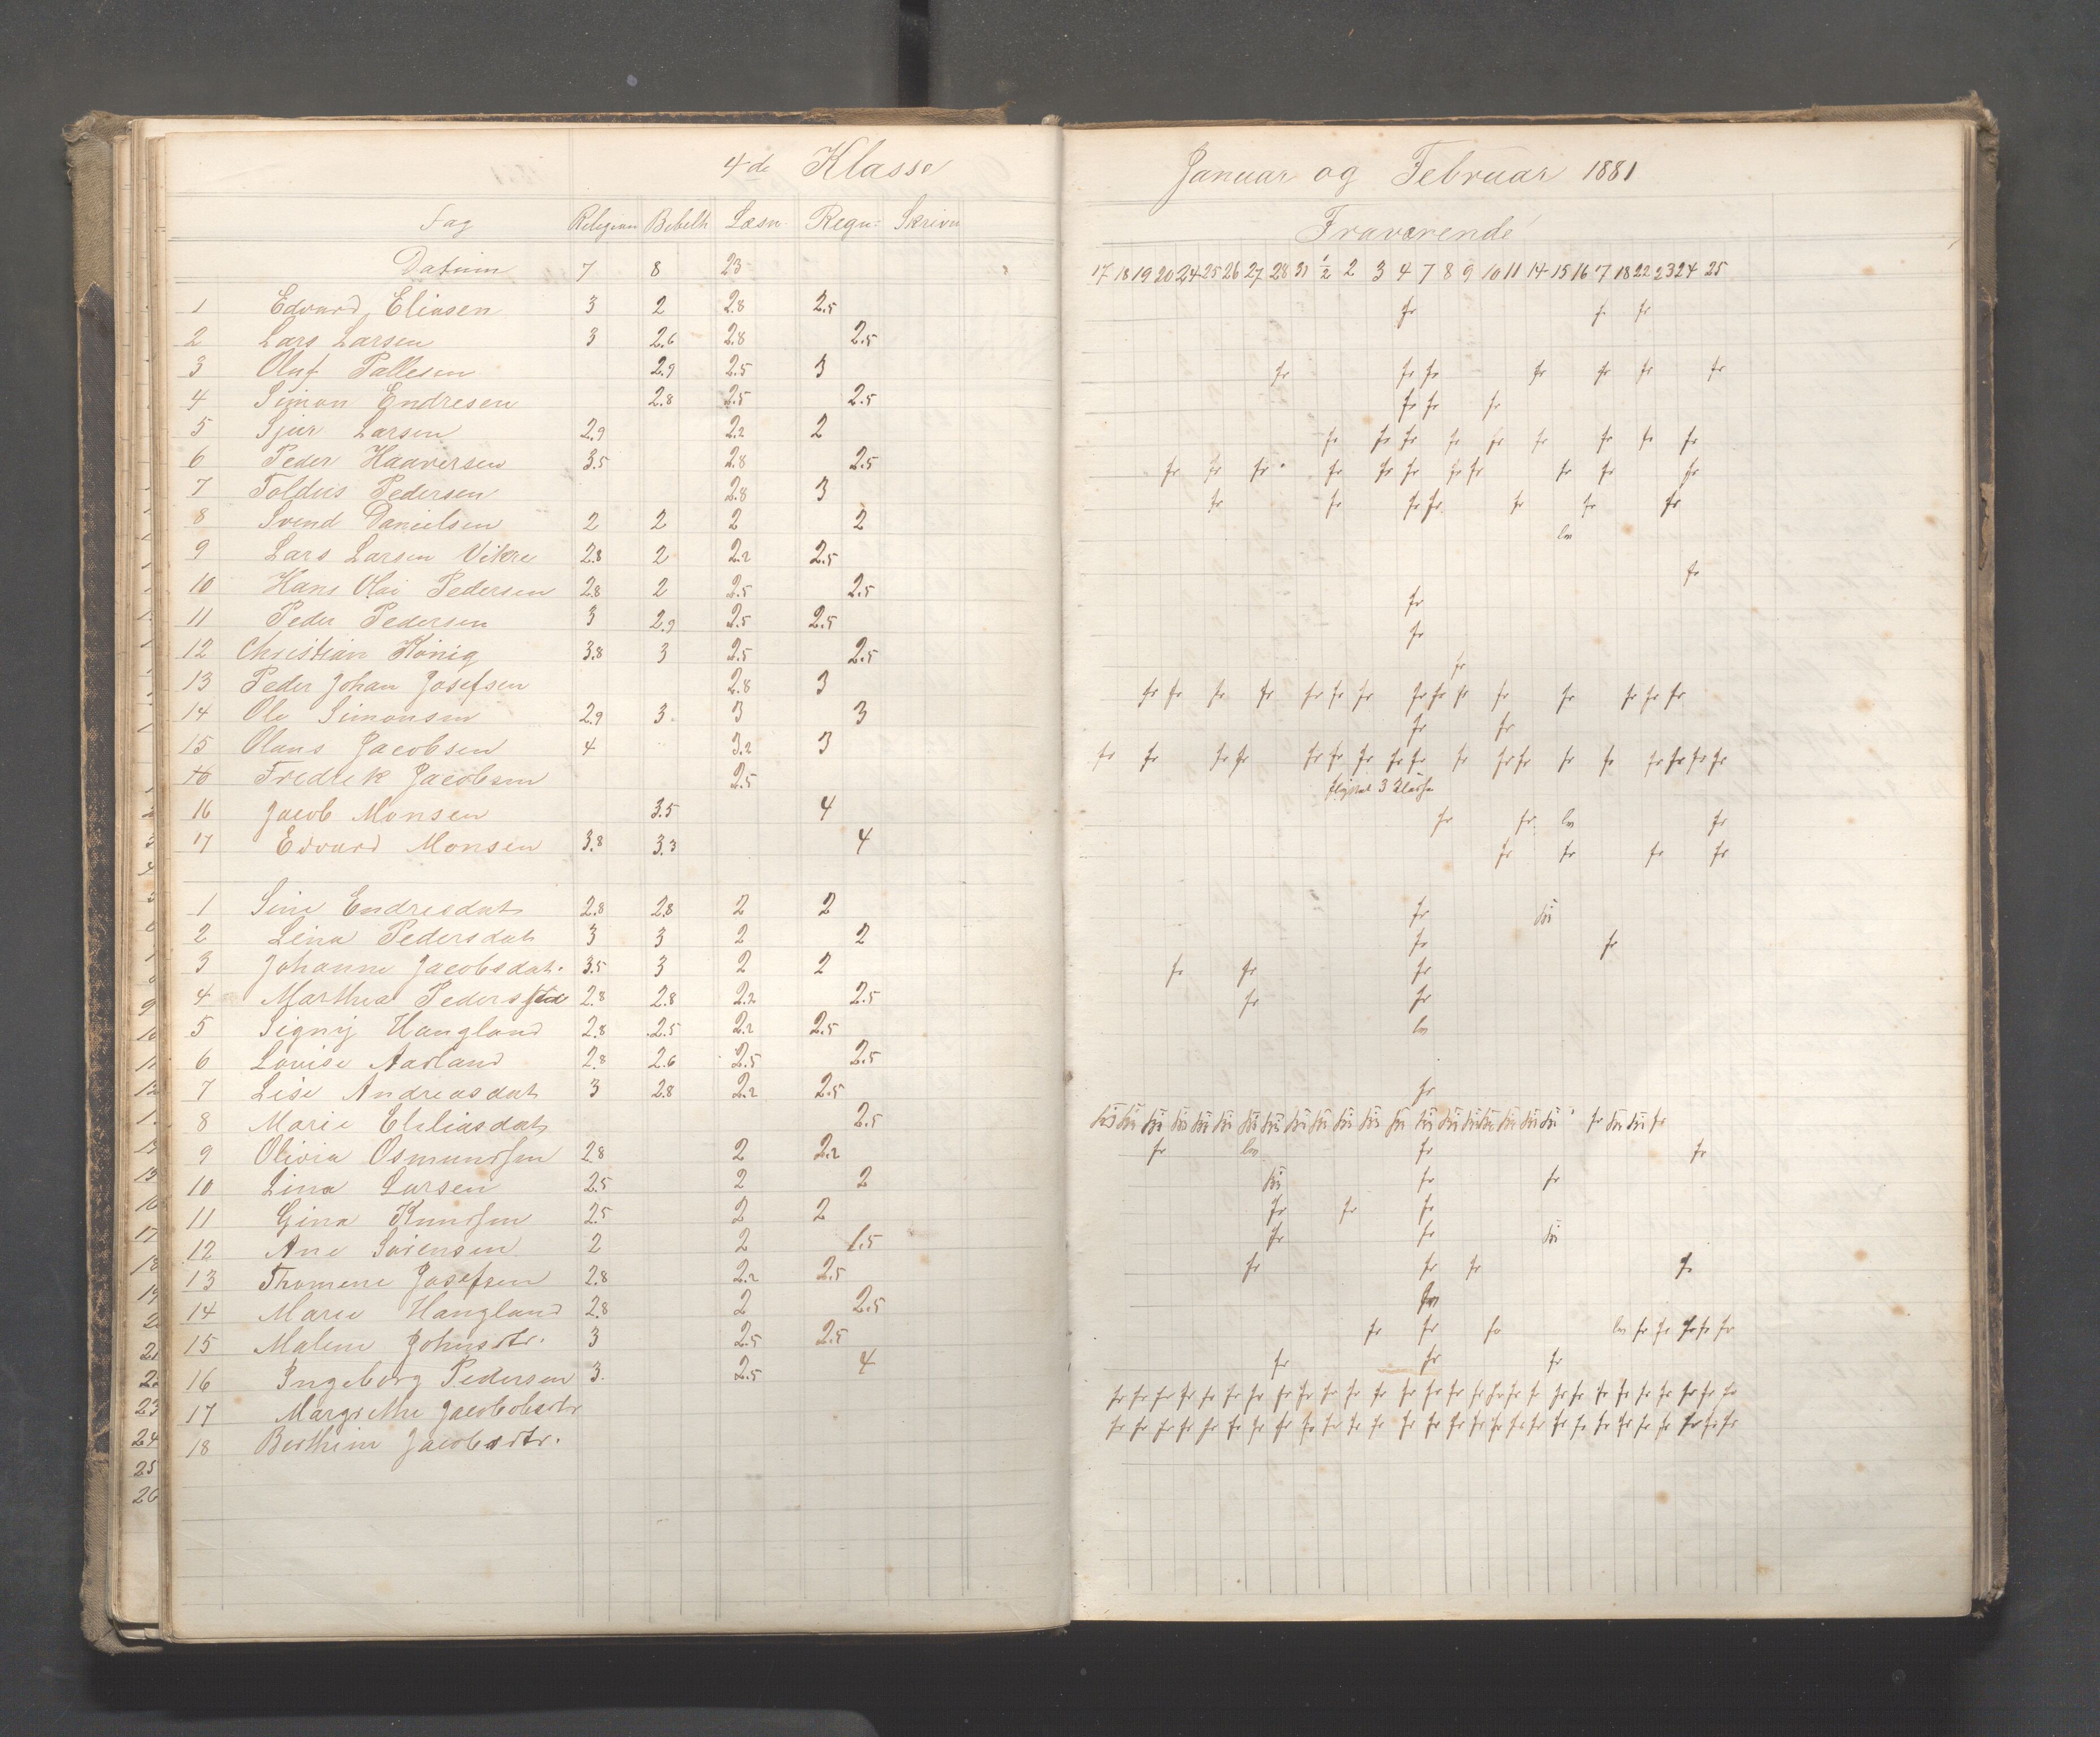 4de Klasse
Fag Religion Bibelh Læsn. Regn: Skrivn
Datum 7 8 23
1 Edvard Eliasen 3 2 2.8 2.5
2 Lars Larsen 3 2.6 2.8 2.5
3 Oluf Pallesen 2.9 2.5 3
4 Simon Endresen 2.8 2.5 2.5
5 Sjur Larsen 2.9 2.2 2
6 Peder Haaversen 3.5 2.8 2.5
7 Toldeis Pedersen 2.8 3
8 Svend Danielsen 2 2 2 2
9 Lars Larsen Vikre 2.8 2 2.2 2.5
10 Hans Olai Pedersen 2.8 2 2.5 2.5
11 Peder Pedersen 3 2.9 2.5 2.5
12 Christian König 3.8 3 2.5 2.5
13 Peder Johan Josefsen 2.8 3
14 Ole Simonsen 2.9 3 3 3
15 Olaus Jacobsen 4 3.2 3
16 Fredrek Jacobsen 2.5
16 Jacob Monsen 3.5 4
17 Edvard Monsen 3.8 3.3 4
1 Sine Endresdat 2.8 2.8 2 2
2 Lina Pedersdat 3 3 2 2
3 Johanne Jacobsdat. 3.5 3 2 2
4 Marthea Peders 2.8 2.8 2.2 2.5
5 Signy Haugland 2.8 2.5 2.2 2.5
6 Lovise Aarland 2.8 2.6 2.5 2.5
7 Lise Andreasdat 3 2.8 2.2 2.5
8 Marie Eleliasdat 2.5
9 Olivia Osmundsen 2.8 2 2.2
10 Lina Larsen 2.5 2 2
11 Gina Knudsen 2.5 2 2
12 Ane Sørensen 2 2 1.5
13 Thomene Josefsen 2.8 2.2 2.5
14 Marie Haugland 2.8 2 2.5
15 Malene Johnsdtr. 3 2.5 2.5
16 Ingeborg Pedersen 3. 2.5 4
17 Margrethe Jacobobsdtr
18 Berthine Jacobsdtr.
Januar og Februar 1881
Fraværende
17 18 19 20 24 25 26 27 28 31 1/2 2 3 4 7 8 9 10 11 14 15 16 17 18 22 23 24 25
fr fr fr
fr fr fr fr fr fr fr
fr fr fr
fr fr fr fr fr fr fr fr fr
fr fr fr fr fr fr fr fr fr fr fr
fr fr fr fr fr fr fr
lov
fr
fr
fr
fr
fr fr fr fr fr fr fr fr fr fr fr fr fr fr fr
fr fr
fr fr fr fr fr fr fr fr fr fr fr fr fr fr fr fr fr fr
3 Klasse
fr fr lov fr
fr fr fr fr
fr
fr fr
fr fr fr
fr fr
lov
fr
fr lov fr fr
fr fr
fr fr fr
fr fr
fr fr fr fr
fr fr fr lov fr fr fr fr fr
fr fr fr